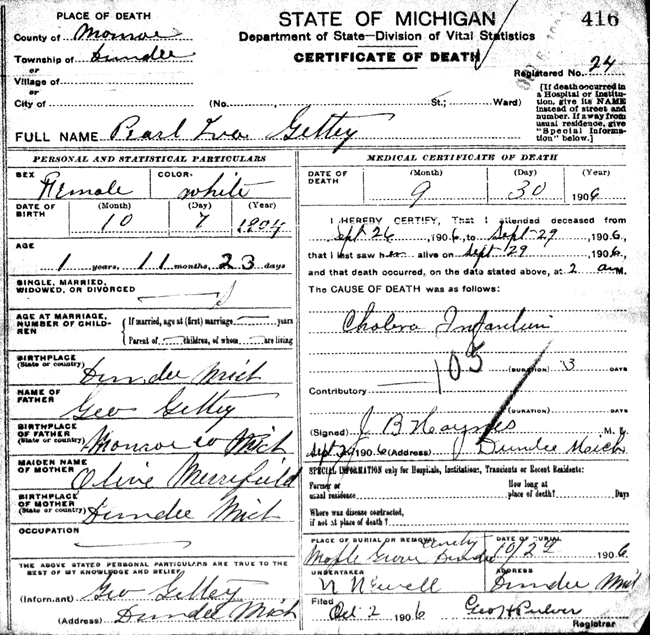 PLACE OF DEATH
STATE OF MICHIGAN
416
County of Monroe
Department of State—Division of Vital Statistics
Township of Dundee
CERTIFICATE OF DEATH
or
Village of
Registered No. 24
or
City of
(No. St.; Ward)
[If death occurred in a Hospital or Institution, give its NAME instead of street and number. If away from usual residence, give "Special Information" below.]
FULL NAME Pearl Iva Gettey
PERSONAL AND STATISTICAL PARTICULARS
SEX Female
COLOR: white
DATE OF BIRTH (Month) (Day) (Year)
10 7 1904
AGE
1 years, 11 months, 23 days
SINGLE, MARRIED, WIDOWED, OR DIVORCED S
AGE AT MARRIAGE, NUMBER OF CHILDREN
If married, age at (first) marriage years
Parent of children, of whom are living
BIRTHPLACE (State or country) Dundee Mich
NAME OF FATHER Geo Gettey
BIRTHPLACE OF FATHER (State or country) Monroe co Mich
MAIDEN NAME OF MOTHER Olive Merrifield
BIRTHPLACE OF MOTHER (State or country) Dundee Mich
OCCUPATION
THE ABOVE STATED PERSONAL PARTICULARS ARE TRUE TO THE BEST OF MY KNOWLEDGE AND BELIEF
(Informant) Geo Gettey
(Address) Dundee Mich
MEDICAL CERTIFICATE OF DEATH
DATE OF DEATH (Month) (Day)
9 30 1906
I HEREBY CERTIFY, That I attended deceased from
Sept 26, 1906, to Sept-29, 1906,
that I last saw her alive on Sept 29, 1906,
and that death occurred, on the date stated above, at 2 a M.
The CAUSE OF DEATH was as follows:
Cholera Infantum
105
(DURATION) 3 DAYS
Contributory
(DURATION) DAYS
(Signed) J B Haynes M. D.
1906 (Address) Dundee Mich
SPECIAL INFORMATION only for Hospitals, Institutions, Transients or Recent Residents:
Former or usual residence
How long at place of death? Days
Where was disease contracted, if not at place of death?
PLACE OF BURIAL OR REMOVAL
Maple Grove Dundee
DATE OF BURIAL
10/2 1906
UNDERTAKER
N Newell
ADDRESS
Dundee Mich
Filed Oct 2 1906 Geo H Pulver
Registrar